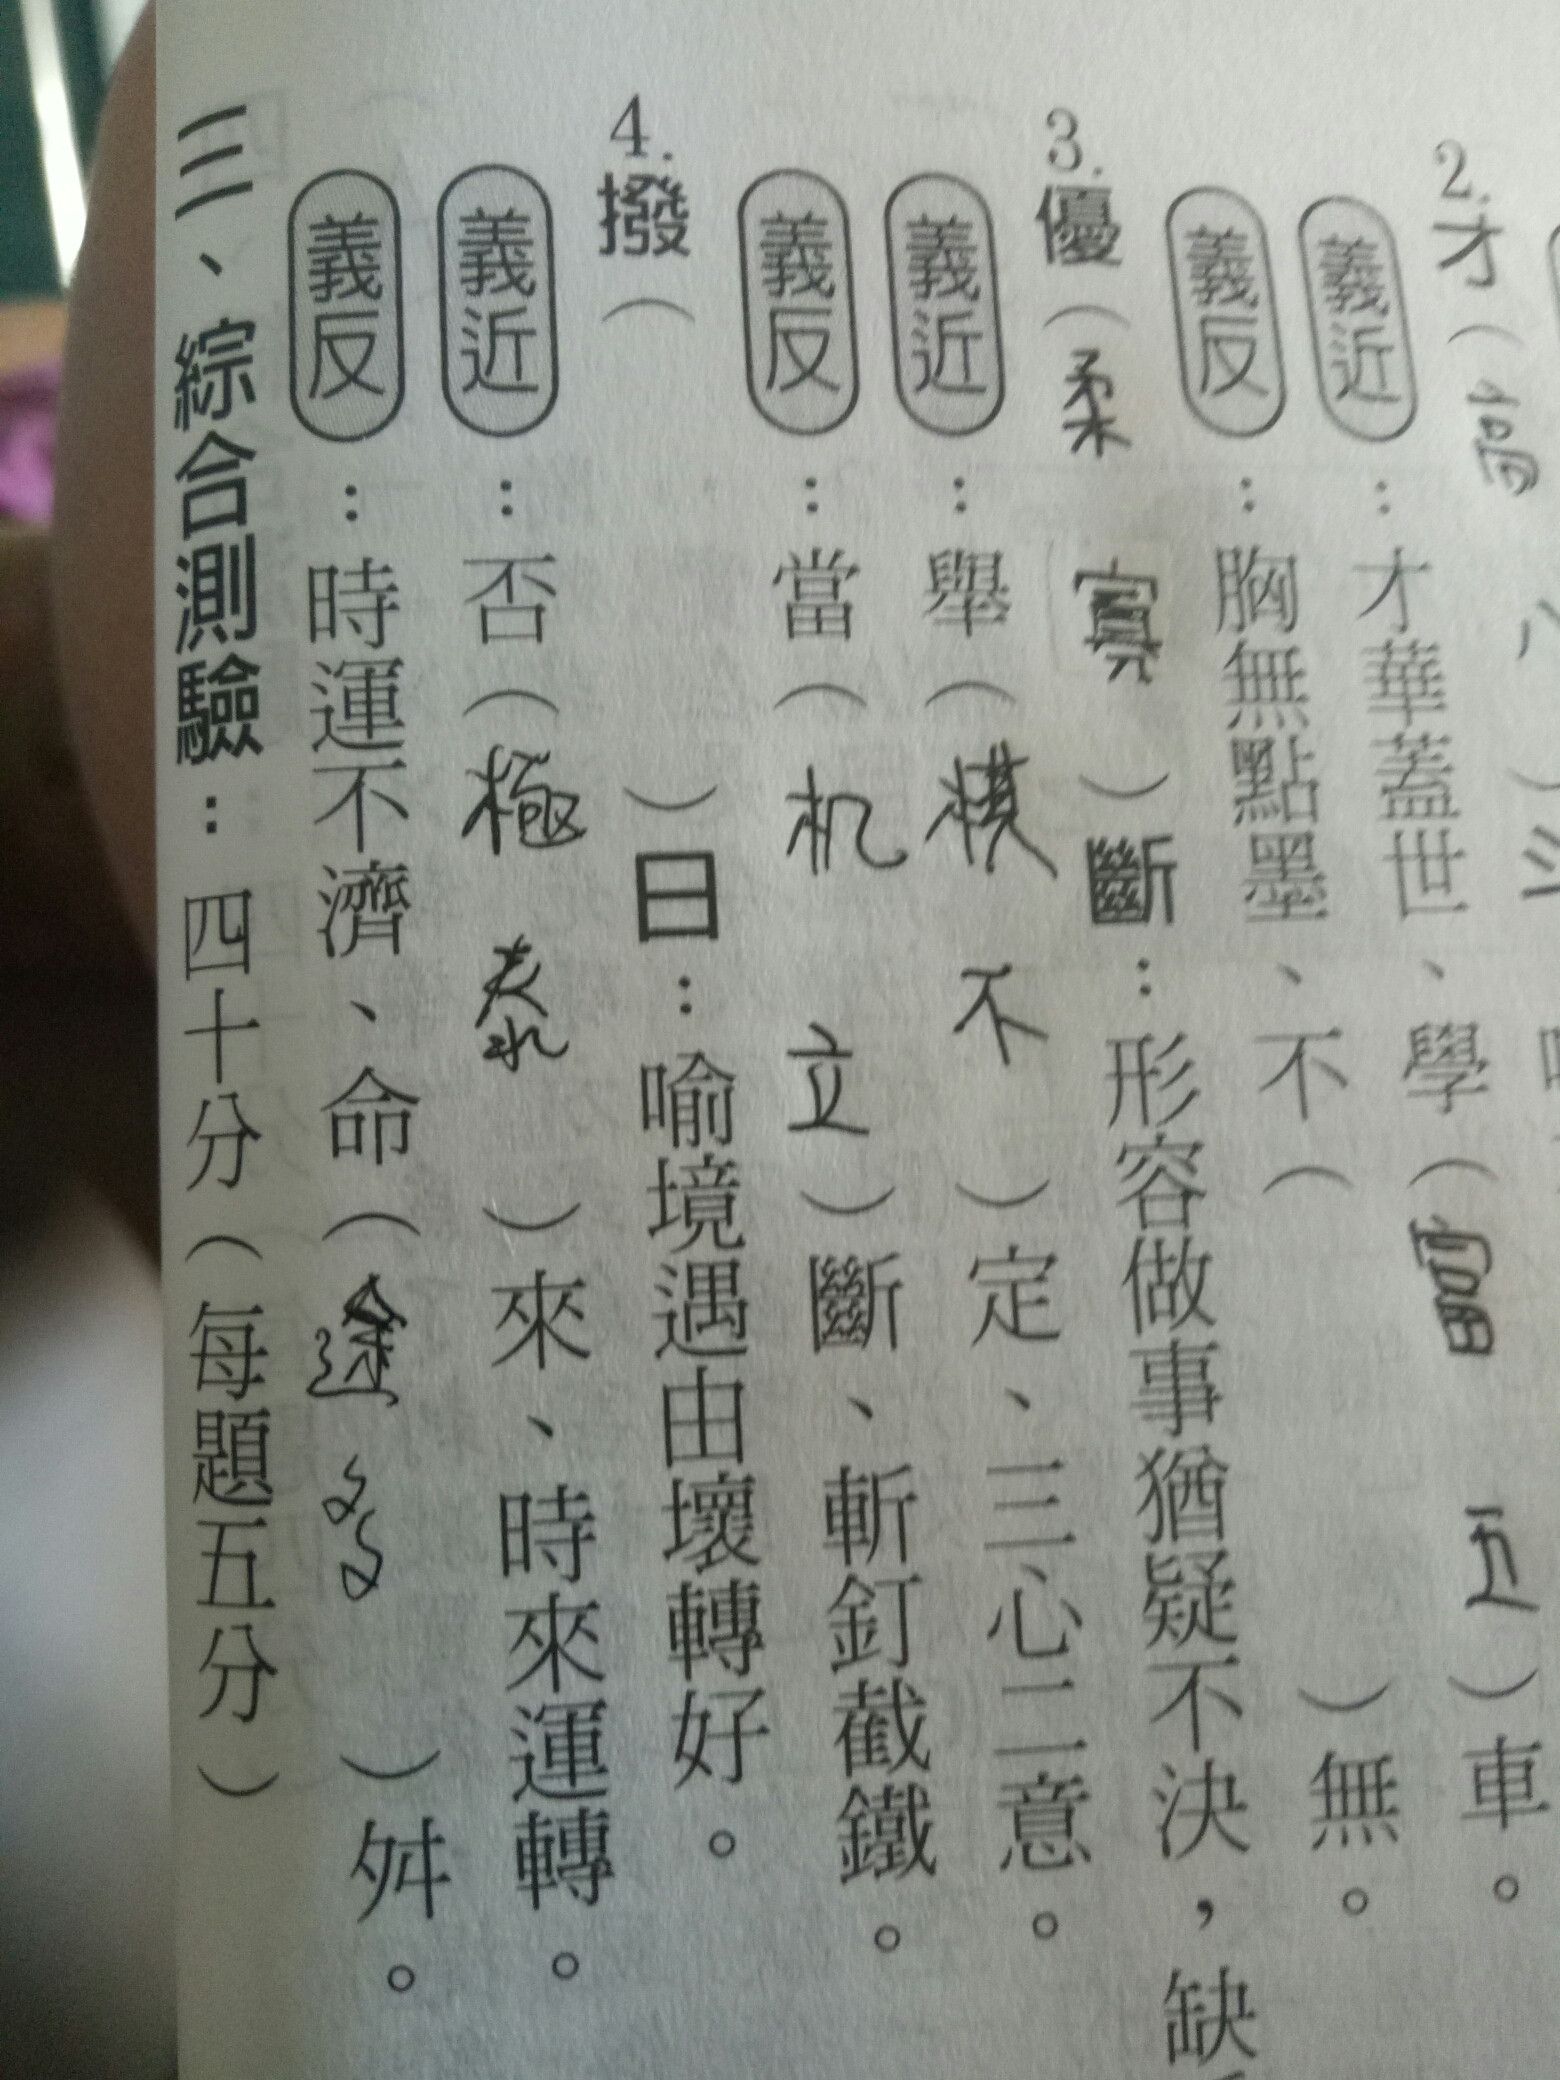 2.才(倍
義近:才華蓋世、學(富 五)車。
義反:胸無點墨、不( )無。
3.優(柔 寡)斷:形容做事猶疑不決,缺
義近:舉(棋 不)定、三心二意。
義反:當(机 立)斷、斬釘截鐵。
4.撥( )日:喻境遇由壞轉好。
義近:否(極 泰)來、時來運轉。
義反:時運不濟、命(途 多)舛。
三、綜合測驗:四十分(每題五分)